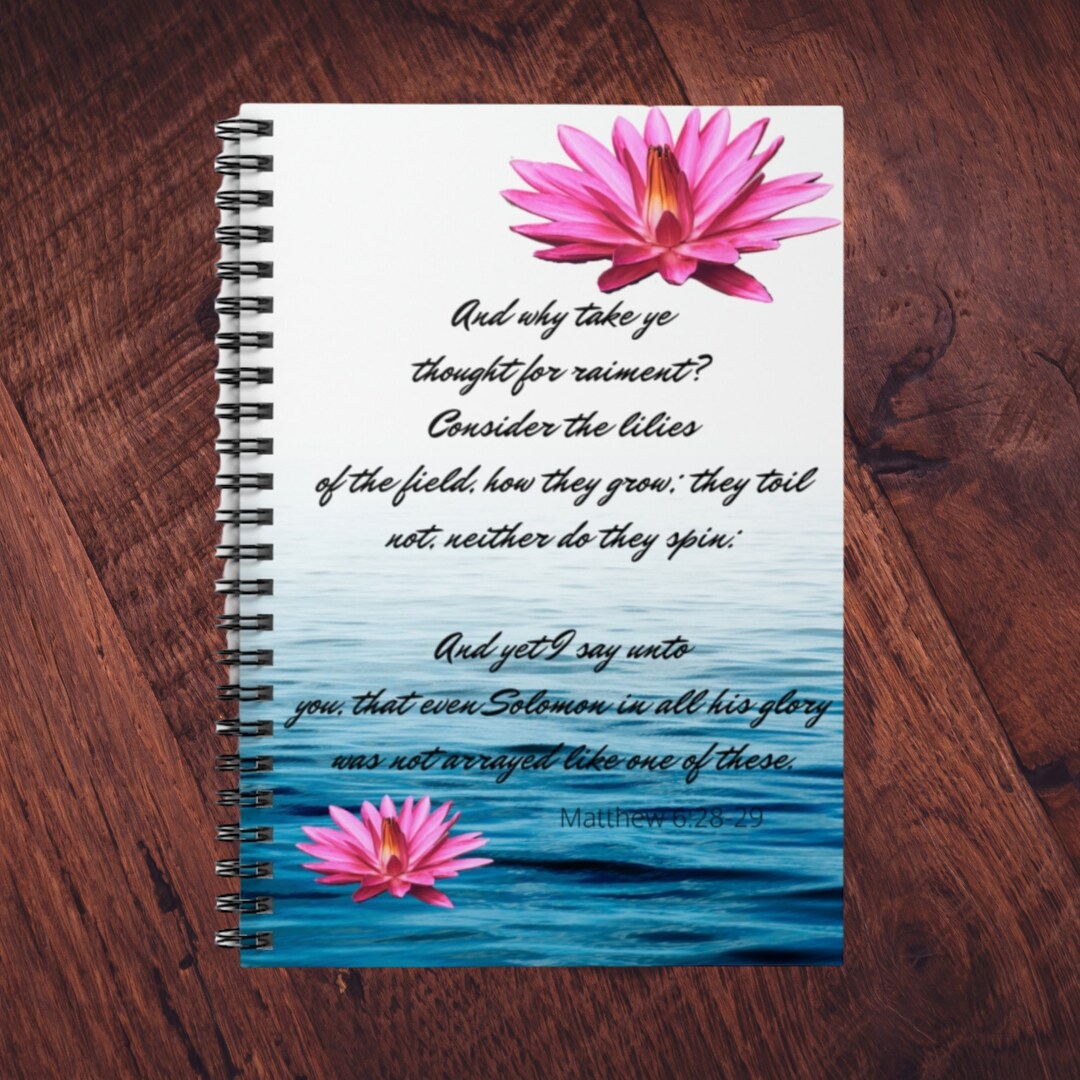 And why take ye
thought for raiment?
Consider the lilies
of the field, how they grow; they toil
not, neither do they spin:
And yet I say unto
you, that even Solomon in all his glory
was not arrayed like one of these.
Matthew 6:28-29